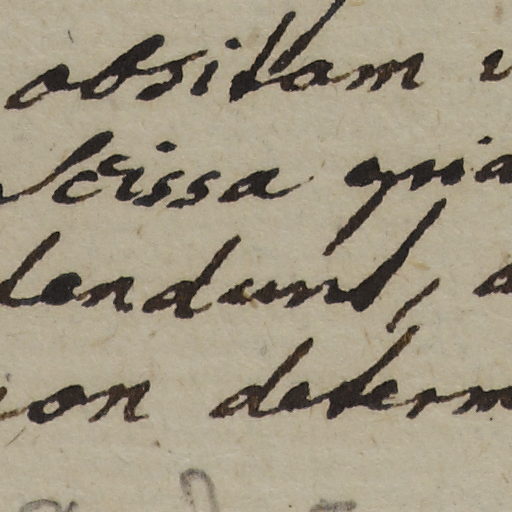 obsitam
Scissa quia
dendunt,
non determ